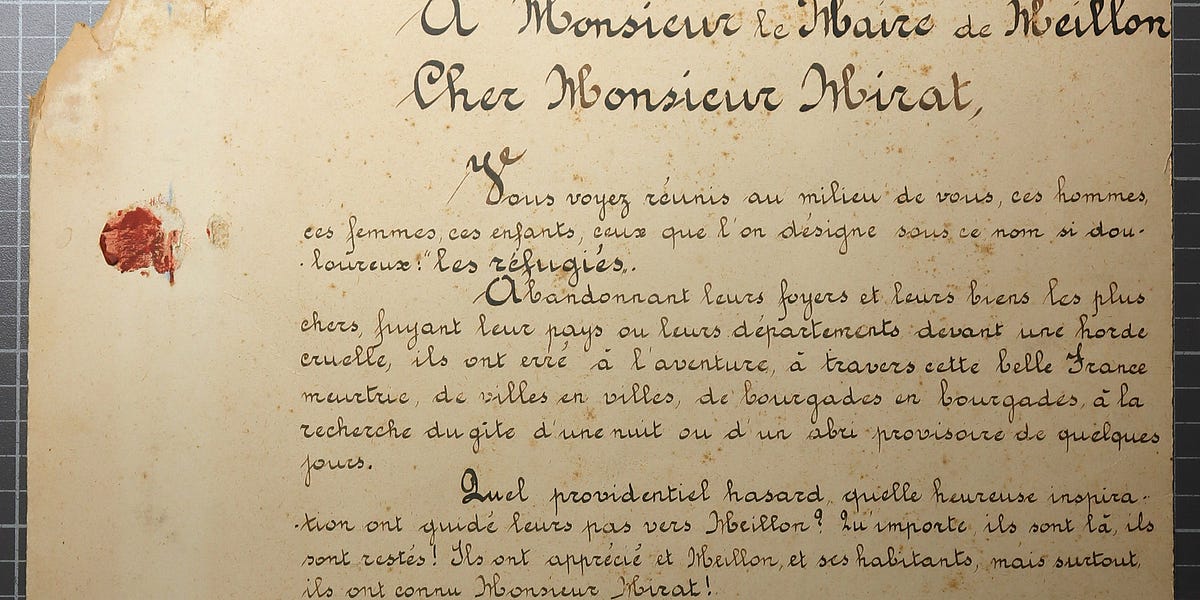 A Monsieur le Maire de Meillon
Cher Monsieur Mirat,
Vous voyez réunis au milieu de vous, ces hommes,
ces femmes, ces enfants, ceux que l'on désigne sous ce nom si dou-
-loureux: "les réfugiés".
Abandonnant leurs foyers et leurs biens les plus
chers, fuyant leur pays ou leurs départements devant une horde
cruelle, ils ont erré à l'aventure, à travers cette belle France
meurtrie, de villes en villes, de bourgades en bourgades, à la
recherche du gîte d'une nuit ou d'un abri provisoire de quelques
jours.
Quel providentiel hasard, quelle heureuse inspira-
-tion ont guidé leurs pas vers Meillon? Qu'importe, ils sont là, ils
sont restés! Ils ont apprécié et Meillon, et ses habitants, mais surtout,
ils ont connu Monsieur Mirat!